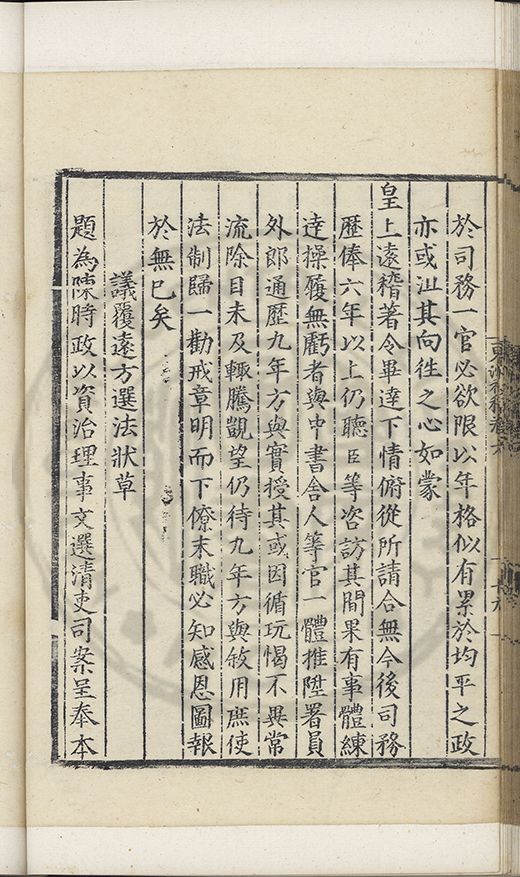 於司務一官必欲限以年格似有累於均平之政
亦或沮其向徃之心如蒙
皇上遠稽著令畢達下情俯從所請合無今後司務
歷俸六年以上仍聽臣等咨訪其間果有事體練
達操履無虧者與中書舍人等官一體推陞署員
外郎通歷九年方與實授其或因循玩愒不異常
流除目未及輒騰觀望仍待九年方與敘用庶使
法制歸一勸戒章明而下僚末職必知感恩圖報
於無已矣
議覆遠方選法狀草
題為陳時政以資治理事文選清吏司案呈奉本